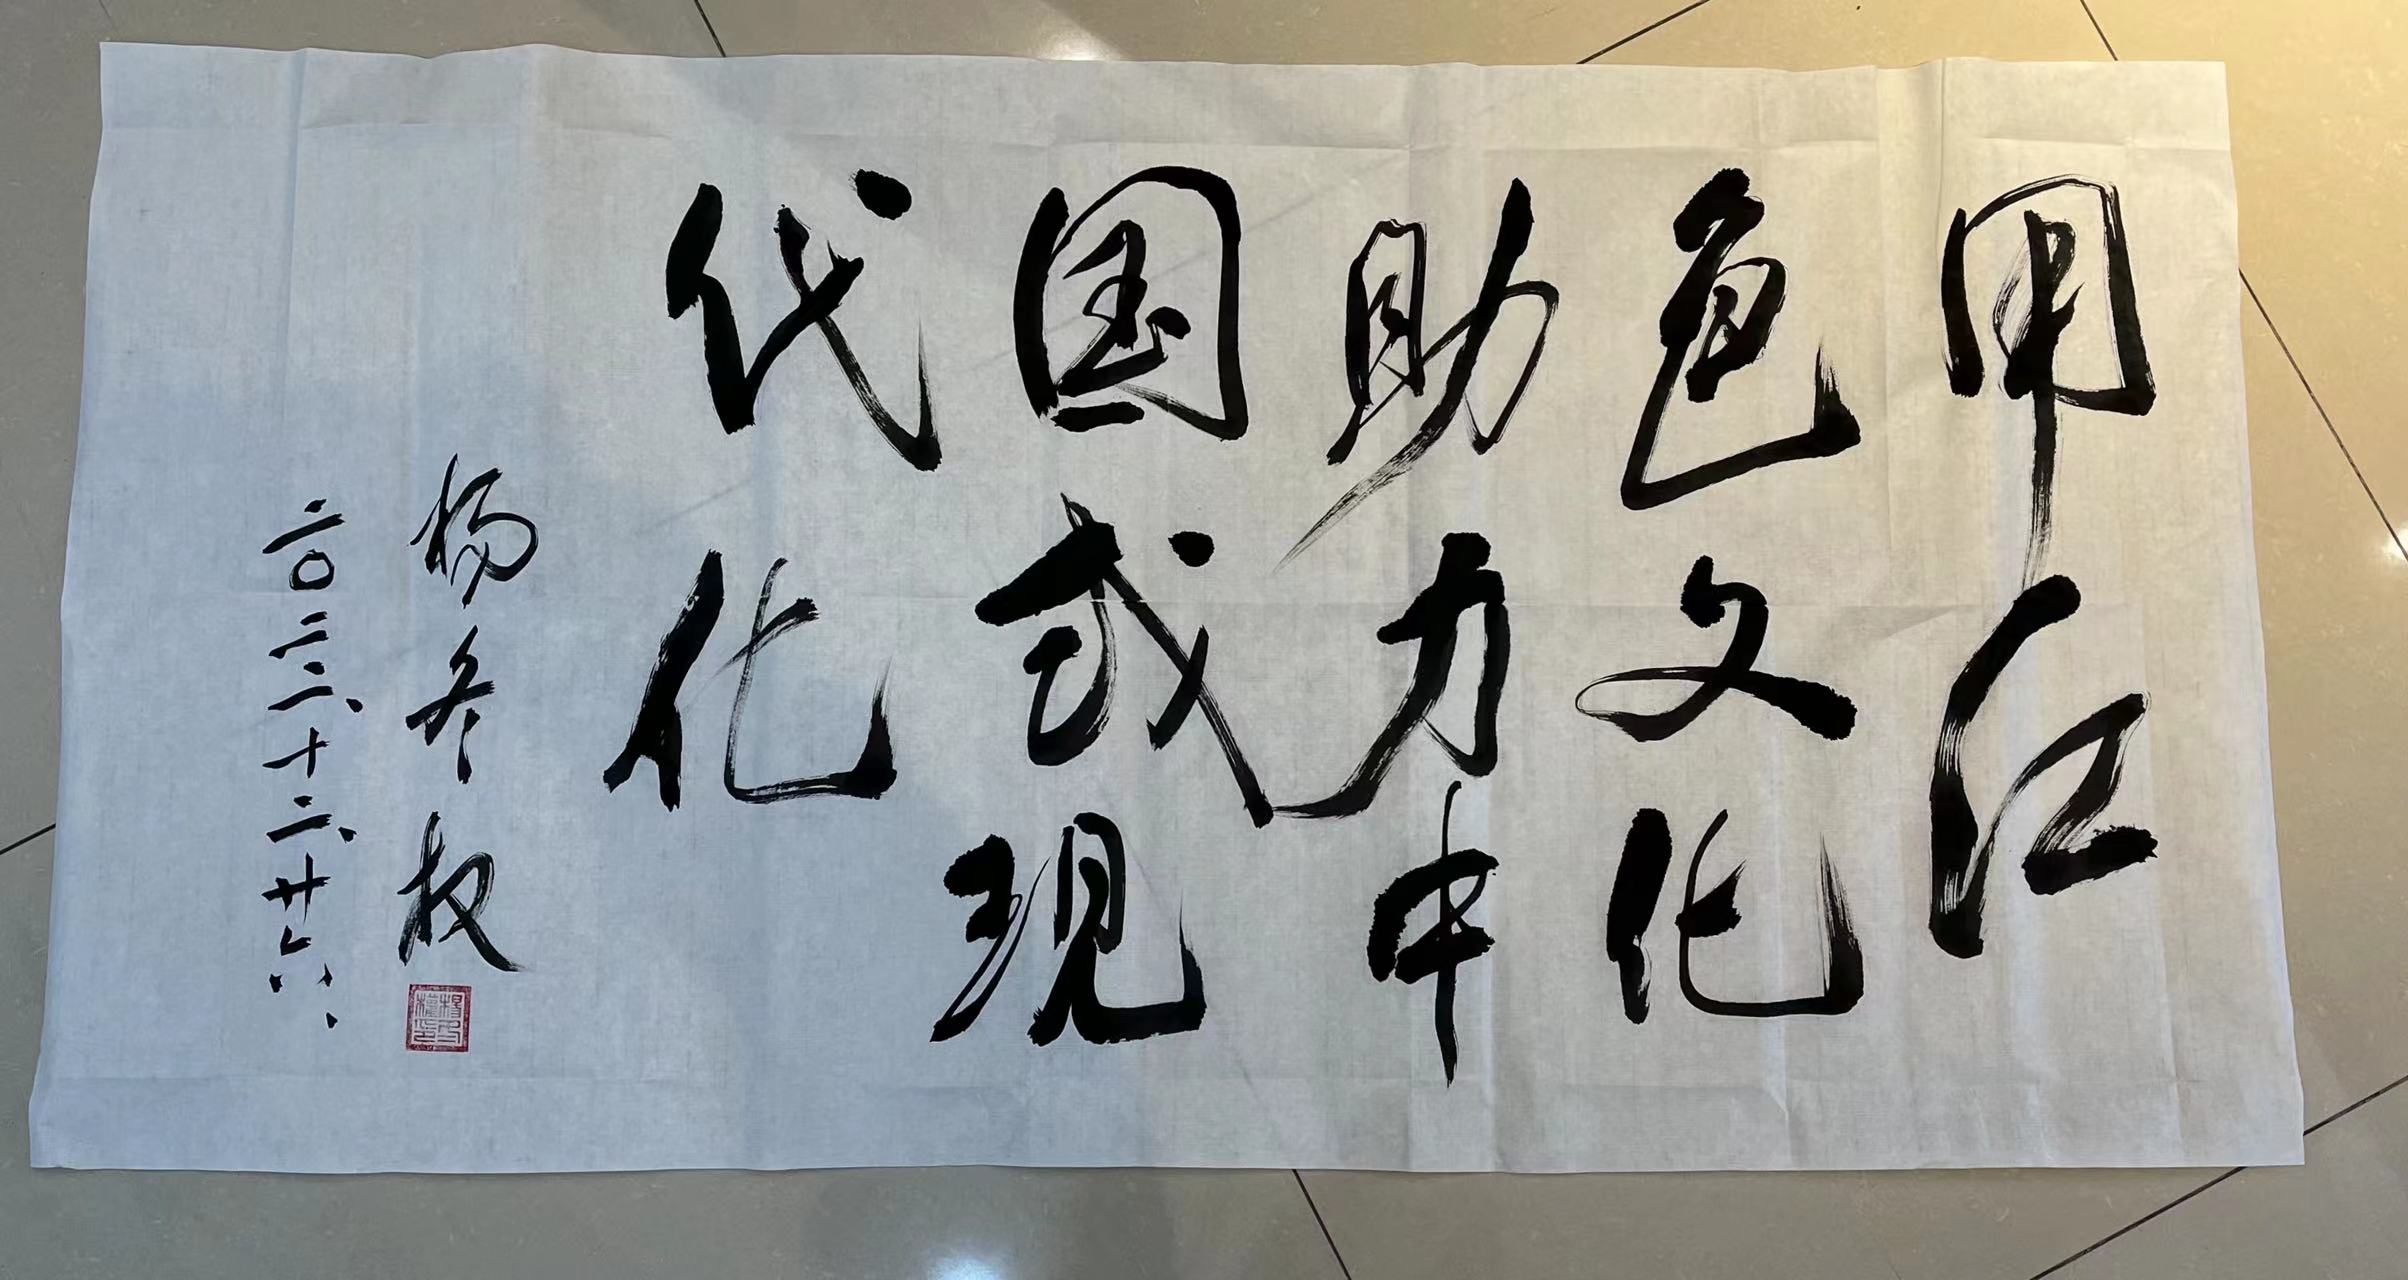 用红
色文化
助力中
国式现
代化
杨冬权
二〇二二、十二、廿六、